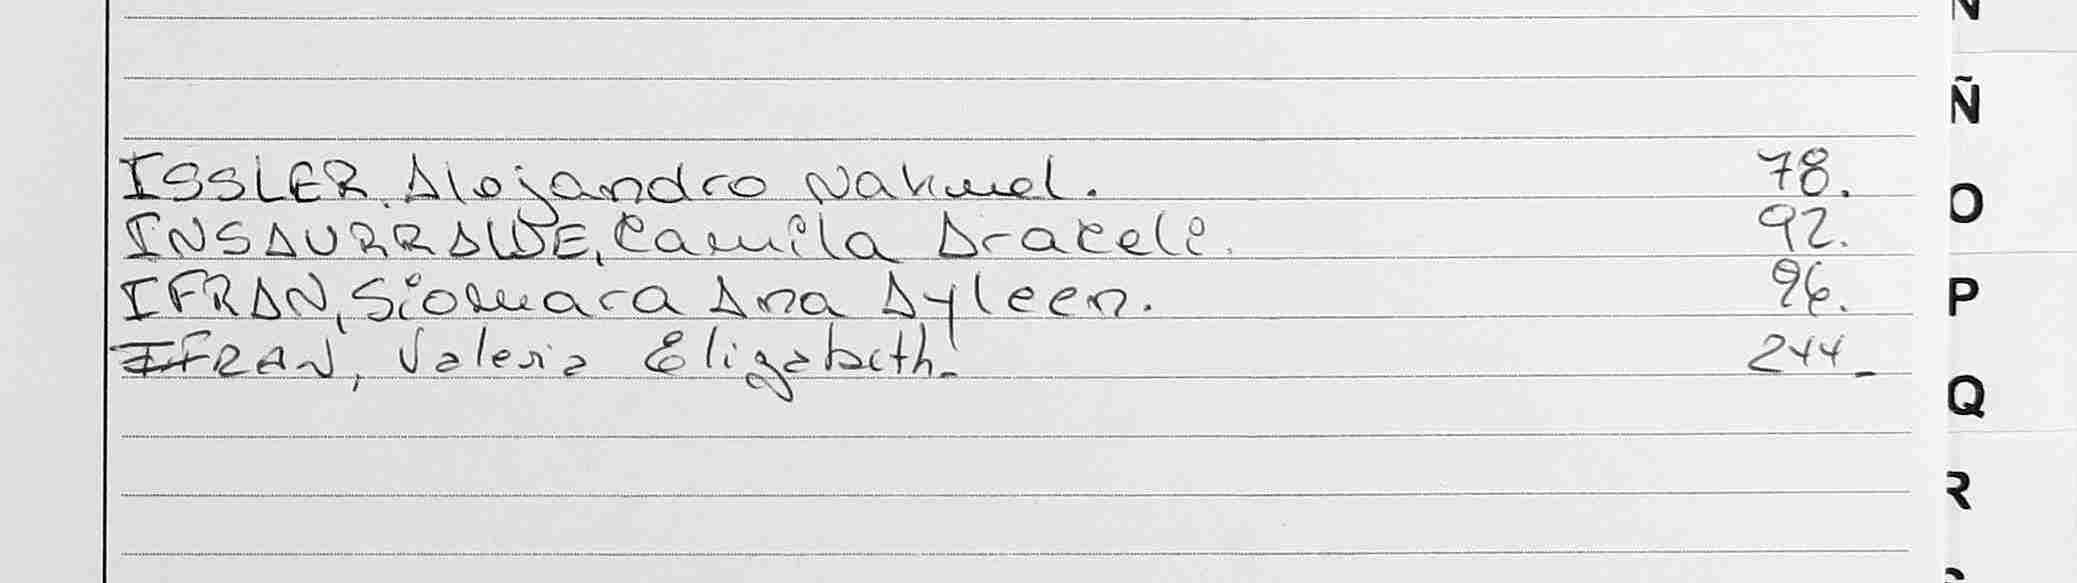 N
Ñ
ISSLER, Alejandro Nahuel. 78.
O
INSAURRALDE, Camila Araceli. 92.
IFRAN, Siomara Ana Ayleen. 96.
P
IFRAN, Valeria Elizabeth. 244_
Q
R